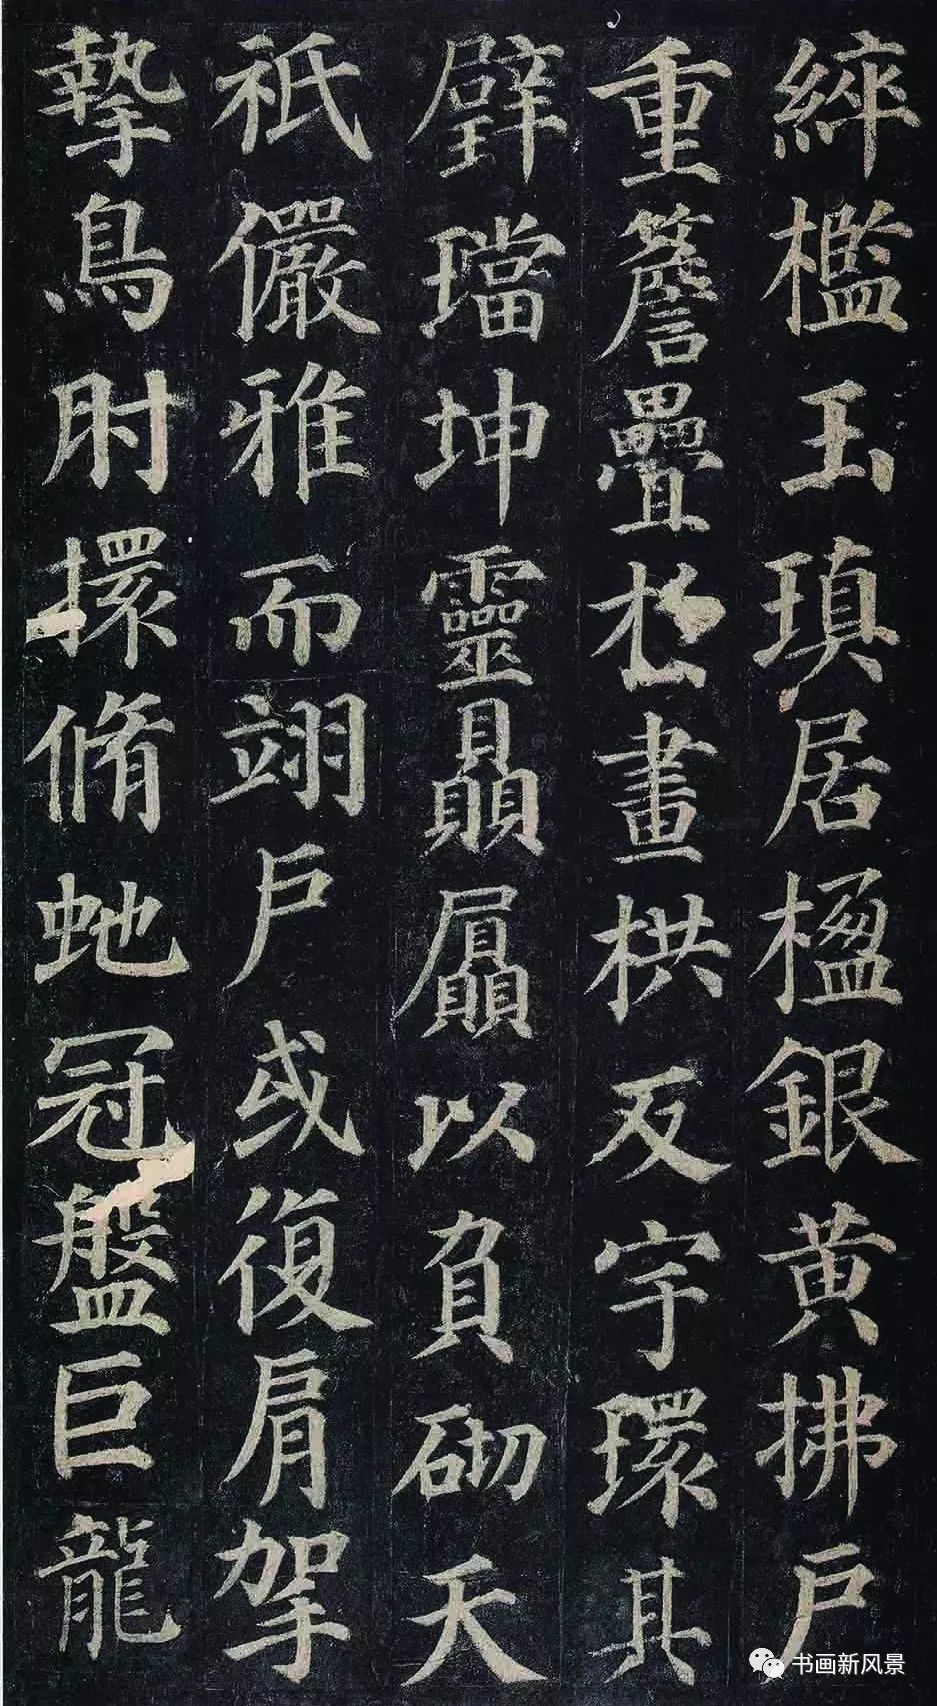 綷檻玉瑱居楹銀黃拂戶
重簷疊於畫栱反宇環其
璧璫坤靈贔屭以負砌天
祇儼雅而翊戶或復肩拏
摯鳥肘擐脩虵冠盤巨龍
书画新风景